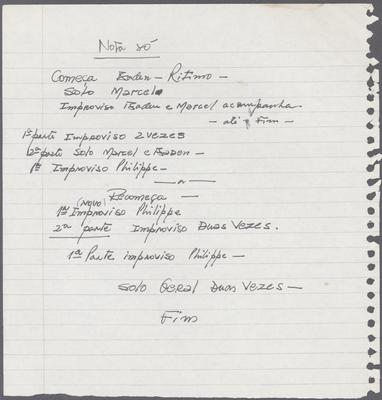 Nota só
Começa Baden - Ritimo -
Solo Marcel
Improviso Baden e Marcel acompanha.
- até o Fim -
1ª parte Improviso 2 vezes
2ª parte Solo Marcel e Baden -
1ª Improviso Philippe -
Recomeça -
(novo)
1ª Improviso Philippe
2ª parte Improviso Duas Vezes.
1ª Parte improviso Philippe -
Solo Geral Duas Vezes -
Fim